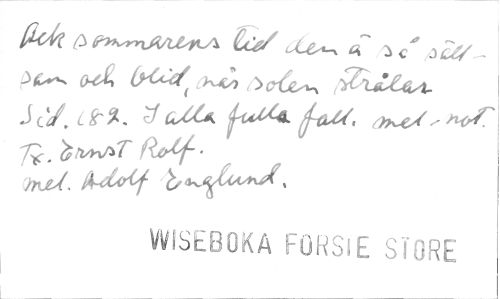 Ack sommarens tid den ä så säll-
sam och blid, när solen strålar
Sid. 182. I alla fulla fall. mel-not.
Tx. Ernst Rolf.
mel. Adolf Englund.
WISEBOKA FORSIE STORE